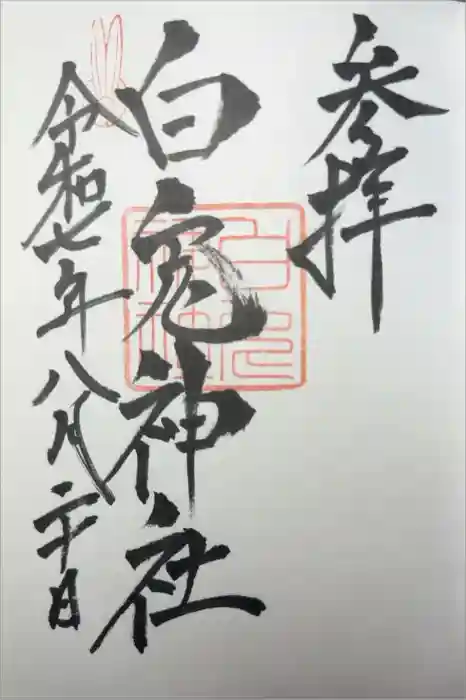 参拝
白兎神社
令和七年八月二十日